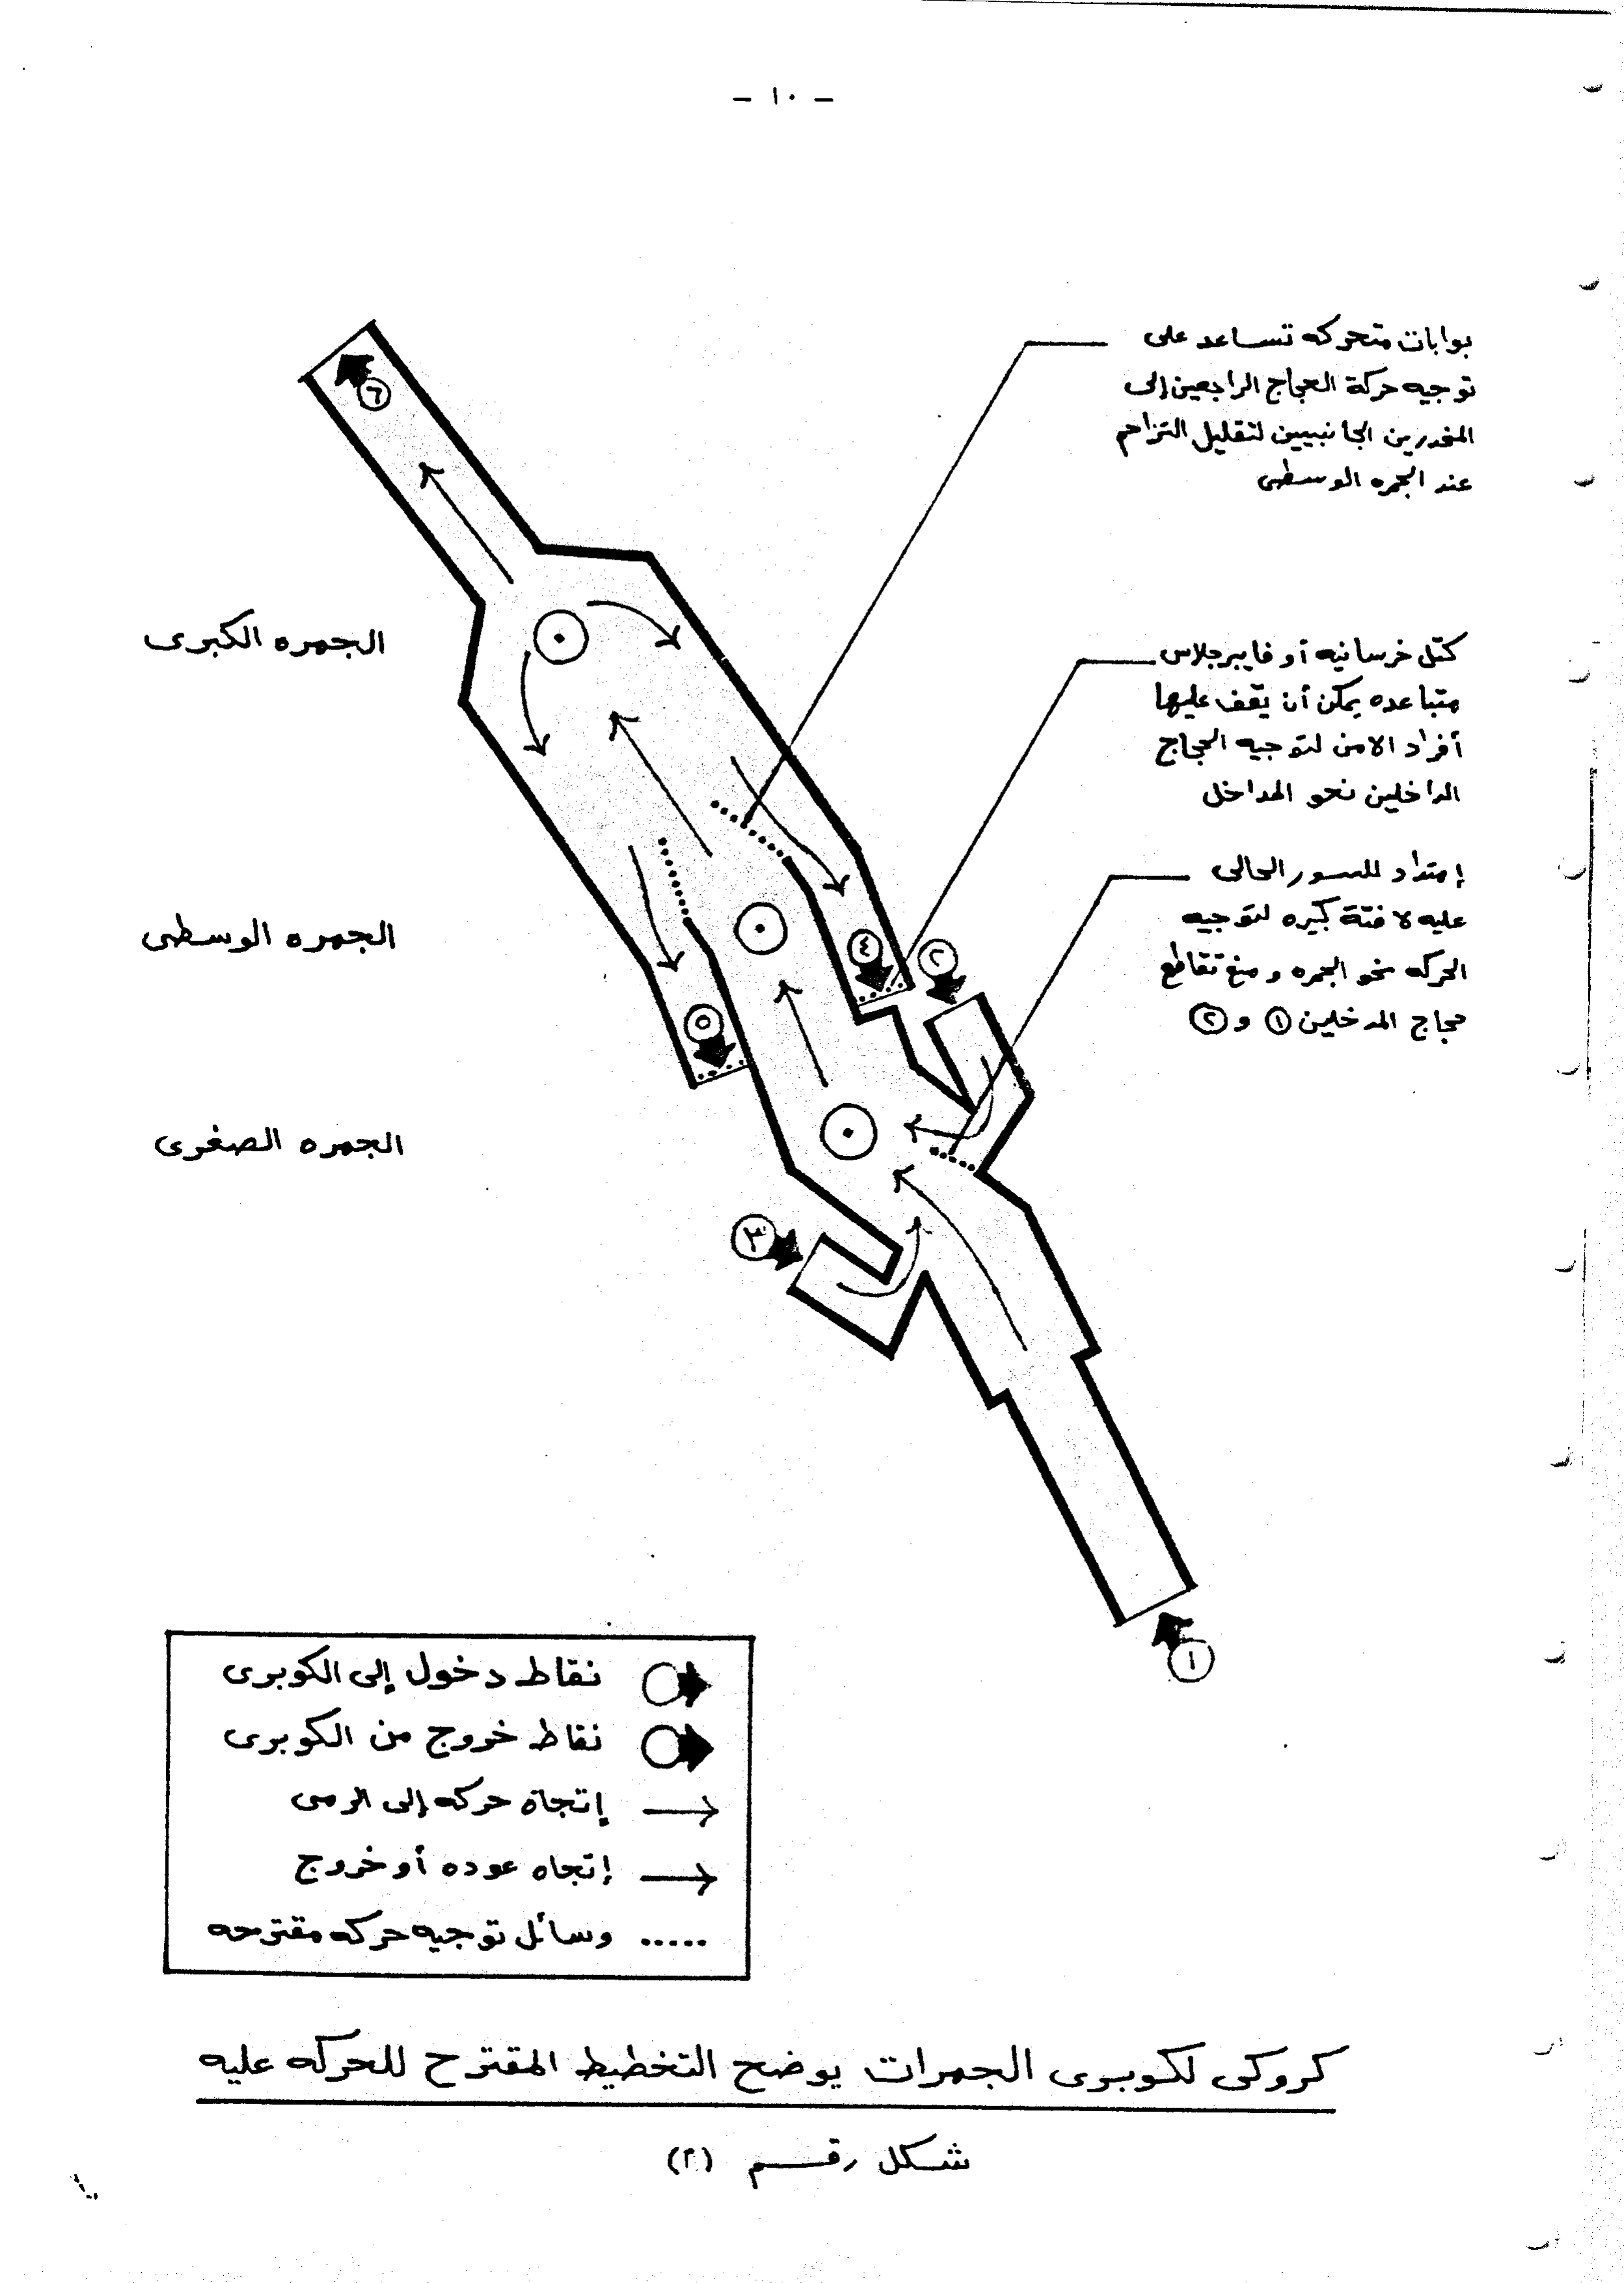 - ١٠ -
بوابات متحركه تساعد على
توجيه حركة الحجاج الراجعين إلى
المنحدرين الجانبيين لتقليل التزاحم
عند الجمره الوسطى
كتل خرسانيه أو فايبرجلاس
متباعده يمكن أن يقف عليها
أفراد الامن لتوجيه الحجاج
الداخلين نحو المداخل
إمتداد للسور الحالى
عليه لافتة كبيره لتوجيه
الحركه نحو الجمره و منع تقاطع
حجاج المدخلين ١ و ٢
الجمره الكبرى
الجمره الوسطى
الجمره الصغرى
٦
٤
٢
٥
٣
١
نقاط دخول إلى الكوبرى
نقاط خروج من الكوبرى
إتجاة حركه إلى الرمى
إتجاه عوده أو خروج
وسائل توجيه حركه مقترحه
كروكى لكوبرى الجمرات يوضح التخطيط المقترح للحركه عليه
شكل رقم (٢)